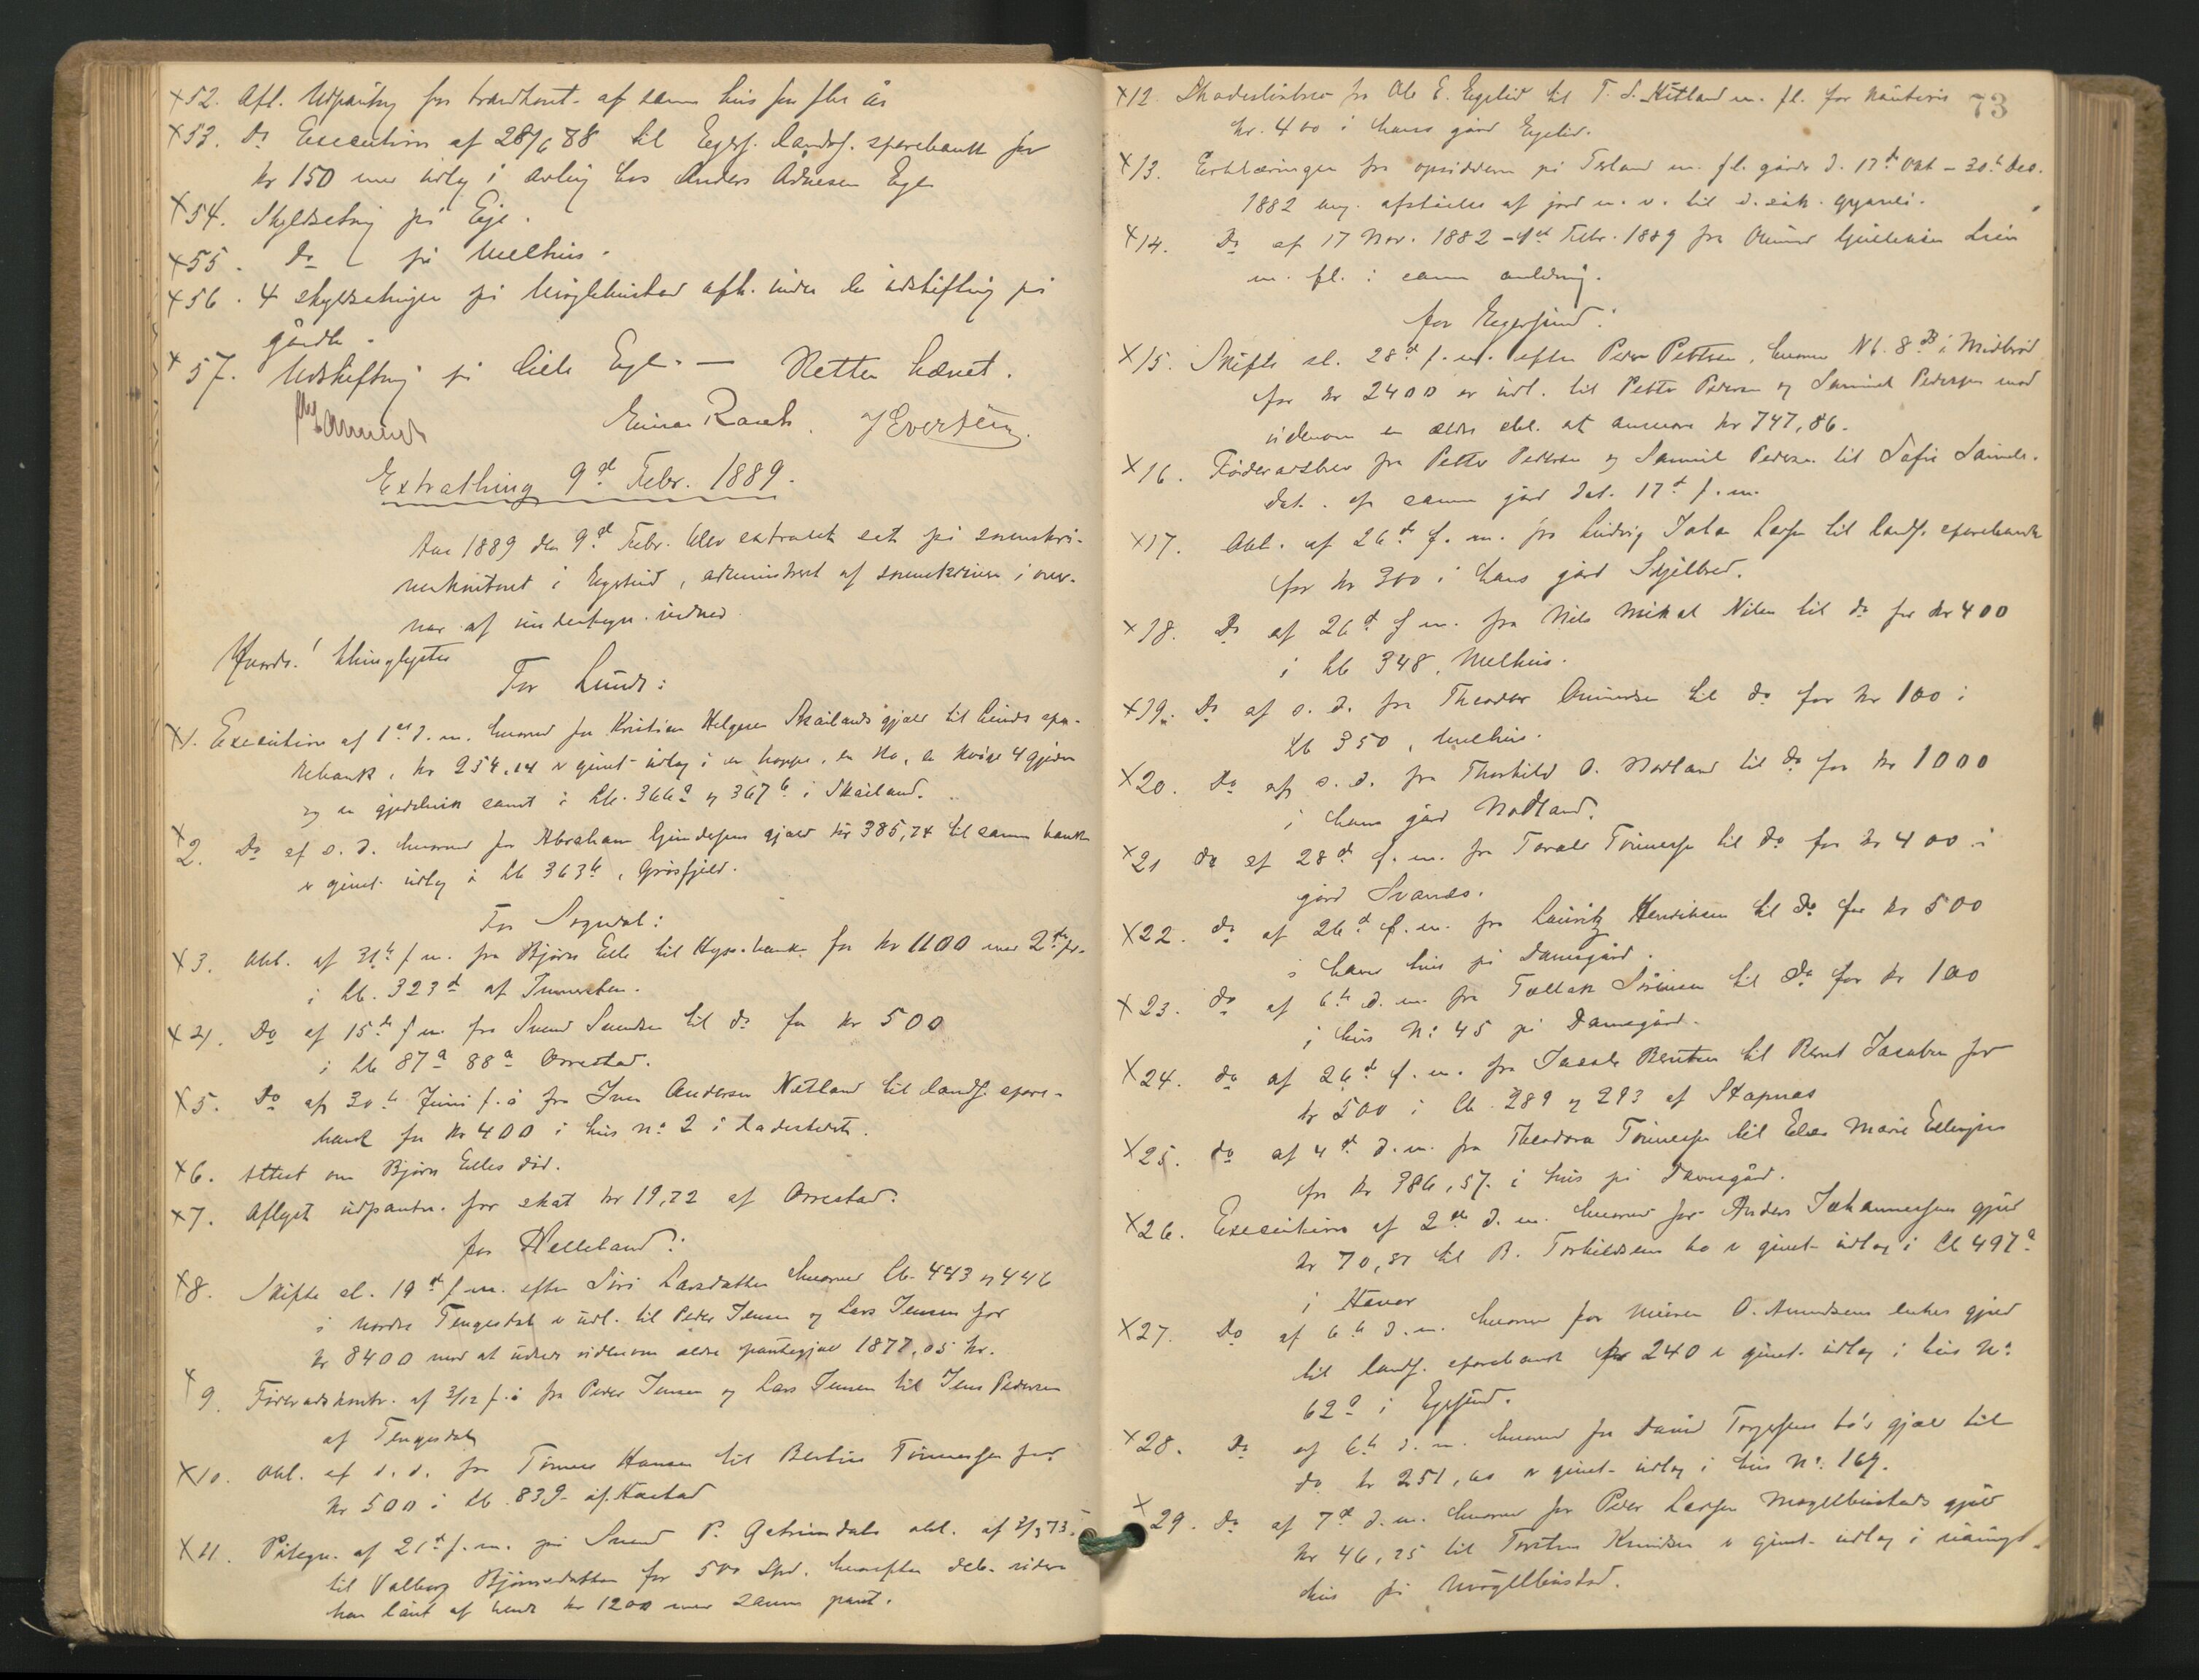 x52. Afl. Udpantng for brandkont. af samme hus for flere år
x53. do Execution af 28/6 88 til Egers. landsg. sparebank for
kr 150 med udlæg i avling hos Anders Ådnesen Ege
x54. Skyldsetng på Eje.
x55. do på Melhus.
x56. 4 skyldsetninger på Møglebustad afh. under en udskiftng på
gården.
x57. Udskiftng på lille Ege. — Retten hævet.
Einar Rasch. J Evertsen.
Extrathing 9d Febr. 1889.
Aar 1889 den 9d Febr. blev extraret sat på sorenskri-
verkontoret i Egersund, administreret af sorenskriveren i over-
vær af undertegn. vidner
thinglystes
For Lund:
x1. Execution af 1ste d. m. hvorved for Kristian Helgesen Skailands gjæld til Lunds spa-
rebank, kr 254,14 er givet udlæg i en hoppe, en ko, en kvige 4 gjeder
og en gjedebuk samt i Lb. 366a og 367b i Skailand.
x2. Do af s. d. hvorved for Abraham Gundersens gjæld kr 385,74 til samme bank
er givet udlæg i Lb 363b, Grøsfjeld.
For Sogndal:
x3. Obl. af 31te f. m. fra Bjørn Eelle til Hyp. bank. for kr 1100 med 2den pr.
i Lb. 323d af
x4. Do af 15de f m. fra Svend Svendsen til do for kr 500
i Lb 87a 88a Orrestad.
x5. Do af 30te Juni f. å fra Iver Andersen Nætland til landsg. spare-
bank for kr 400 i hus no 2 i Ladestedet.
x6. Attest om Bjørn Eelles død.
x7. Aflyst udpantn. for skat kr 19,72 af Orrestad.
for Helleland:
x8. Skifte sl. 19d f. m. efter Siri Larsdatter hvorved Lb. 443 og 446
i nordre Tengesdal er udl. til Peder Jensen og Lars Jensen for
kr 8400 mod at udrede videnom ældre pantegjæld 1877,05 kr.
x9. Føderådskontr. af 3/12 f. å fra Peder Jensen og Lars Jensen til Jens Pedersen
af Tengesdal
x10. Obl. af s. d. fra Tønnes Hansen til Bertine Tønnessen for
kr 500 i Lb. 839 af Haastad
x11. Påtegn. af 21d f. m. på Svend P. Gatrimdals obl. af 2/3 73
til Valborg Bjørnsdatter for 500 Spd. hvorefter deb. siden
har lånt af hende kr 1200 med samme pant.
73
x12. Skadesløsbrev fra Ole E. Egelid til T. S. Kitland m. fl. for kaution
kr. 400 i hans gård Egelid.
x13. Erklæringer fra opsiddern på Tosland m. fl. gårde d. 17de Okt – 30te Dec.
1882 ang. afståelse af jord m. v. til
x14. Do af 17 Nov. 1882 – 1ste Febr. 1889 fra Omund Gulleksen Lien
m. fl. i samme anledng.
for Egersund:
x15. Skifte sl. 28d f. m. efter Peder Pettersen, hvorved Nb. 8B i Midbrød
for kr 2400 er udl. til Petter Pedersen og Samuel Pedersen mod
videnom en ældre obl. at ansvare kr 747,86.
x16. Føderådsbrev fra Petter Pedersen og Samuel Pedersen til Sofie Samuels-
dat. af samme gård dat. 17d f. m.
x17. Obl. af 26d f. m. fra Ludvig Johan Larsen til landsg. sparebank
for kr 300 i hans gård Skjelbred.
x18. Do af 26d f m. fra Nils Mikal Nilsen til do for kr 400
i Lb 348, Melhus.
x19. Do af s. d. fra Theodor Omundsen til do for kr 100 i
Lb 350, Melhus.
x20. Do af s. d. fra Thorkild O. Nodland til do for kr 1000
i hans gård Nodland.
x21 do af 28d f. m. fra Torvald Tønnessen til do for kr 400 i
gård Svanæs.
x22. do af 26d f. m. fra Lauritz Henriksen til do for kr 500
i hans hus på Damsgård.
x23. do af 6te d. m. fra Tollak Sørensen til do for kr 100
i hus No 45 på Damsgård.
x24. do af 26d f. m. fra Jacob Berntsen til Bernt Jacobsen for
kr 500 i Lb. 289 og 293 af Stapnæs
x25. do af 4d d. m. fra Theodora Tønnessen til Elen Marie Ellingsen
for kr 386,57. i hus på Damsgård.
x26. Execution af 2den d. m. hvorved for Anders Johannessens gjæld
kr 70, til B. Torkildsens bo er givet udlæg i Lb 497a
i Havsø
x27. Do af 6te d. m. hvorved for O. Amundsens enkes gjæld
til landsg. sparebank kr 240 er givet udlæg i hus No
62a i Egersund.
x28. Do af 6te d. m. hvorved for David Torgersens bo's gjæld til
do kr 251,60 er givet udlæg i hus No. 169.
x29. Do af 7d d. m. hvorved for Peder Larsen Møgelbustads gjæld
kr 46,25 til Torsten Knudsen er givet udlæg i
hus på Møgelbustad.